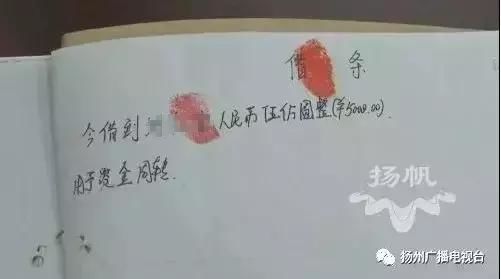 借条
今借到 人民币伍仟圆整(¥5000.00).
用于资金周转.
扬帆
扬州广播电视台